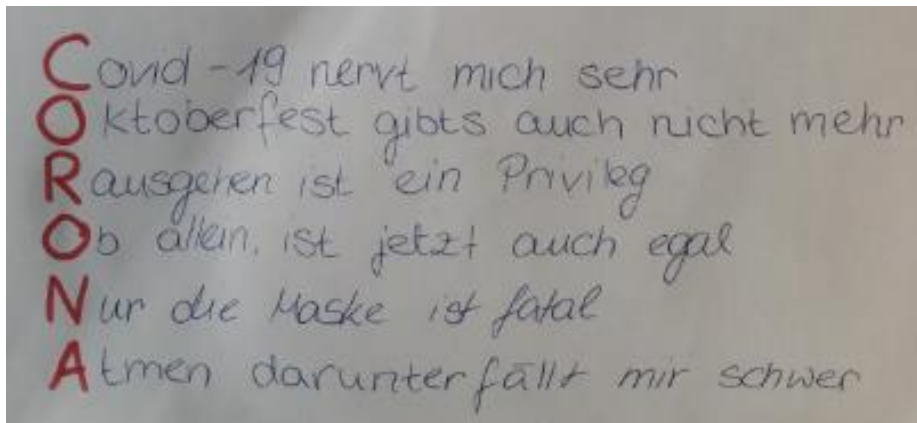 Covid-19 nervt mich sehr
Oktoberfest gibts auch nicht mehr
Rausgehen ist ein Privileg
Ob allein, ist jetzt auch egal
Nur die Maske ist fatal
Atmen darunter fällt mir schwer